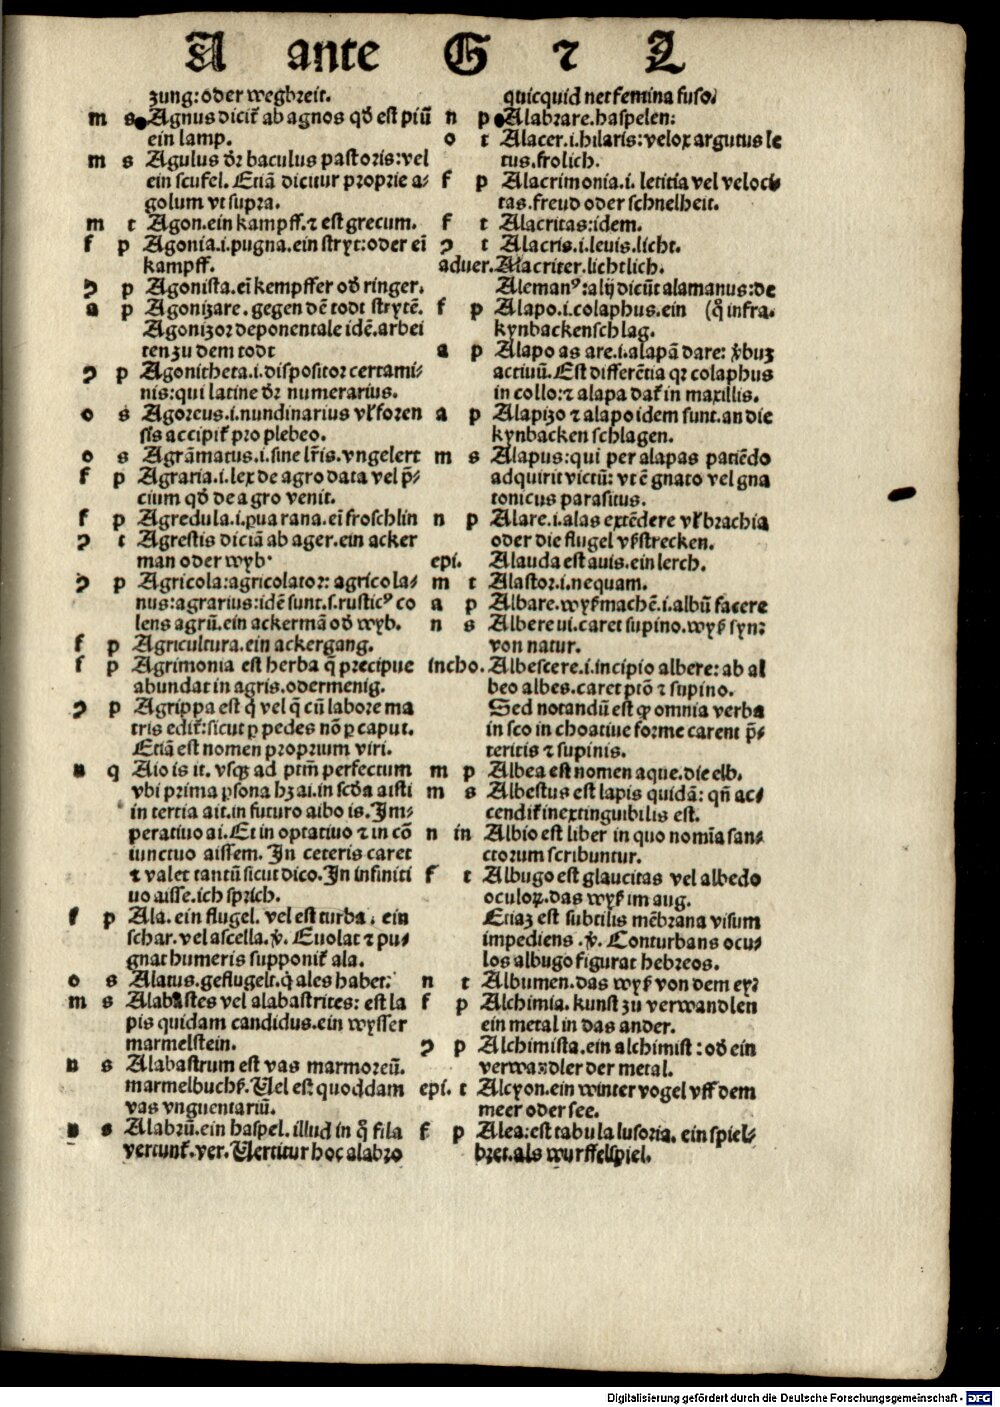 A ante G ⁊ L
zung: oder wegbreit.
m s Agnus dicit̃ ab agnos qđ est piũ
ein lamp.
m s Agulus đr baculus pastoris: vel
ein scufel. Etiã dicitur proprie a⸗
golum vt supra.
m t Agon. ein kampff. ⁊ est grecum.
f p Agonia .i. pugna. ein stryt: oder eĩ
kampff.
ꝯ p Agonista. eĩ kempffer ođ ringer.
a p Agonizare. gegen dẽ todt strytẽ.
Agonizor deponentale idẽ. arbei
ten zu dem todt
ꝯ p Agonitheta .i. dispositor certami⸗
nis: qui latine đr numerarius.
o s Agoreus .i. nundinarius vł foren
sis accipit̃ pro plebeo.
o s Agrãmatus .i. sine lr̃is. vngelert
f p Agraria .i. lex de agro data vel p̃⸗
cium qđ de agro venit.
f p Agredula .i. ꝑua rana. eĩ froschlin
ꝯ t Agrestis diciã ab ager. ein acker
man oder wyb.
ꝯ p Agricola: agricolator: agricola⸗
nus: agrarius: idẽ sunt. s. rusticꝰ co
lens agrũ. ein ackermã ođ wyb.
f p Agricultura. ein ackergang.
f p Agrimonia est herba q̃ precipue
abundat in agris. odermenig.
ꝯ p Agrippa est q̇ vel q̃ cũ labore ma
tris edit̃: sicut ꝑ pedes nõ ꝑ caput.
Etiã est nomen proprium viri.
n q Aio is it. vsqꝫ ad ptm̃ perfectum
vbi prima ꝑsona hꝫ ai. in scđa aisti
in tertia ait. in futuro aibo is. Im⸗
peratiuo ai. Et in optatiuo ⁊ in cõ
iunctuo aissem. In ceteris caret
⁊ valet tantũ sicut dico. In infiniti
uo aisse. ich sprich.
f p Ala. ein flugel. vel est turba. ein
schar. vel ascella. ꝟ. Euolat ⁊ pu⸗
gnat humeris supponit̃ ala.
o s Alatus. geflugelt. q̇ ales habet.
m s Alabastes vel alabastrites: est la
pis quidam candidus. ein wysser
marmelstein.
n s Alabastrum est vas marmoreũ.
marmelbuchß. Vel est quoddam
vas vnguentariũ.
n s Alabrũ. ein haspel. illud in q̊ fila
vertunt̃. ver. Vertitur hoc alabro
quicquid net femina fuso.
n p Alabrare. haspelen:
o t Alacer .i. hilaris: velox argutus le
tus. frolich.
f p Alacrimonia .i. letitia vel veloci⸗
tas. freud oder schnelheit.
f t Alacritas: idem.
ꝯ t Alacris .i. leuis. licht.
aduer. Alacriter. lichtlich.
Alemanꝰ: alij dicũt alamanus: de
f p Alapo .i. colaphus. ein (q̊ infra.
kynbackenschlag.
a p Alapo as are .i. alapã dare: ꝟbuꝫ
actiuũ. Est differẽtia qr colaphus
in collo: ⁊ alapa dat̃ in maxillis.
a p Alapizo ⁊ alapo idem sunt. an die
kynbacken schlagen.
m s Alapus: qui per alapas patiẽdo
adquirit victũ: vt ẽ gnato vel gna
tonicus parasitus.
n p Alare .i. alas extẽdere vł brachia
oder die flugel vßstrecken.
epi. Alauda est auis. ein lerch.
m t Alastor .i. nequam.
a p Albare. wyß machẽ .i. albũ facere
n s Albere ui. caret supino. wyß syn:
von natur.
incho. Albescere .i. incipio albere: ab al
beo albes. caret ptõ ⁊ supino.
Sed notandũ est ꝙ omnia verba
in sco in choatiue forme carent p̃⸗
teritis ⁊ supinis.
m p Albea est nomen aque. die elb.
m s Albestus est lapis quidã: qñ ac⸗
cendit̃ inextinguibilis est.
n in Albio est liber in quo nomĩa san⸗
ctorum scribuntur.
f t Albugo est glaucitas vel albedo
oculoꝝ. das wyß im aug.
Etiaꝫ est subtilis mẽbrana visum
impediens. ꝟ. Conturbans ocu⸗
los albugo figurat hebreos.
n t Albumen. das wyß von dem ey:
f p Alchimia. kunst zu verwandlen
ein metal in das ander.
ꝯ p Alchimista. ein alchimist: ođ ein
verwandler der metal.
epi. t Alcyon. ein winter vogel vff dem
meer oder see.
f p Alea: est tabula lusoria. ein spiel⸗
bret. als wurffelspiel.
Digitalisierung gefördert durch die Deutsche Forschungsgemeinschaft - DFG